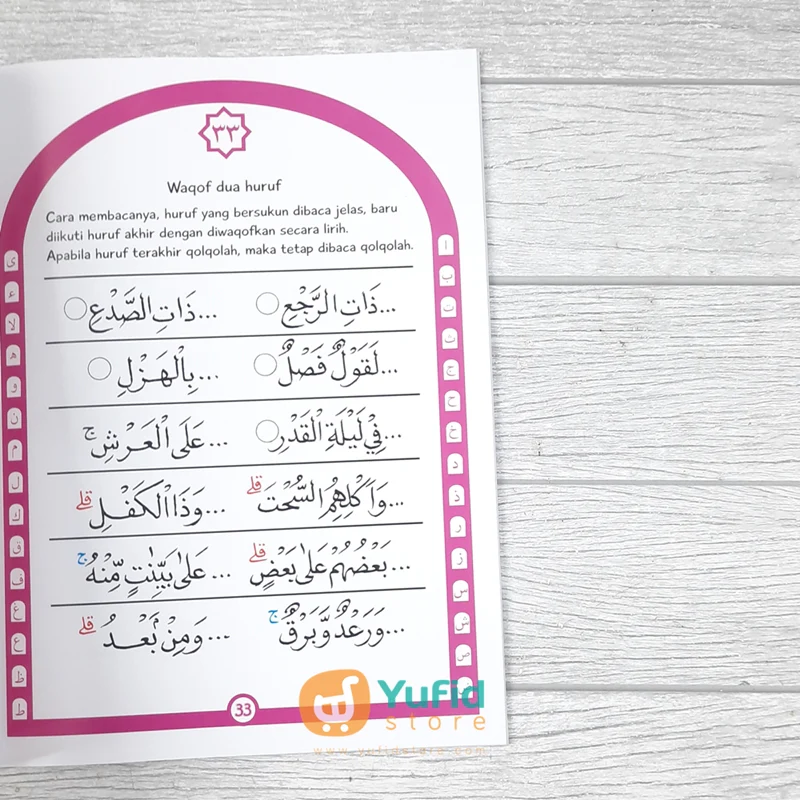 ٣٣
Waqof dua huruf
Cara membacanya, huruf yang bersukun dibaca jelas, baru
diikuti huruf akhir dengan diwaqofkan secara lirih.
Apabila huruf terakhir qolqolah, maka tetap dibaca qolqolah.
...ذَاتِ الرَّجْعِ ...ذَاتِ الصَّدْعِ
...لَقَوْلٌ فَصْلٌ ...بِالْهَزْلِ
...فِيْ لَيْلَةِ الْقَدْرِ ...عَلَى الْعَرْشِ ۚ
...وَاَكْلِهِمُ السُّحْتَ ۗ ...وَذَا الْكَفْلِ ۗ
...بَعْضُهُمْ عَلٰى بَعْضٍ ۗ ...عَلٰى بَيِّنٰتٍ مِّنْهُ ۚ
...وَرَعْدٌ وَّبَرْقٌ ۚ ...وَمِنْ بَعْدُ ۗ
33
ا
ب
ت
ث
ج
ح
خ
د
ذ
ر
ز
س
ش
ص
ي
ء
لا
ه
و
ن
م
ل
ك
ق
ف
غ
ع
ظ
ط
Yufid
store
www.yufidstore.com